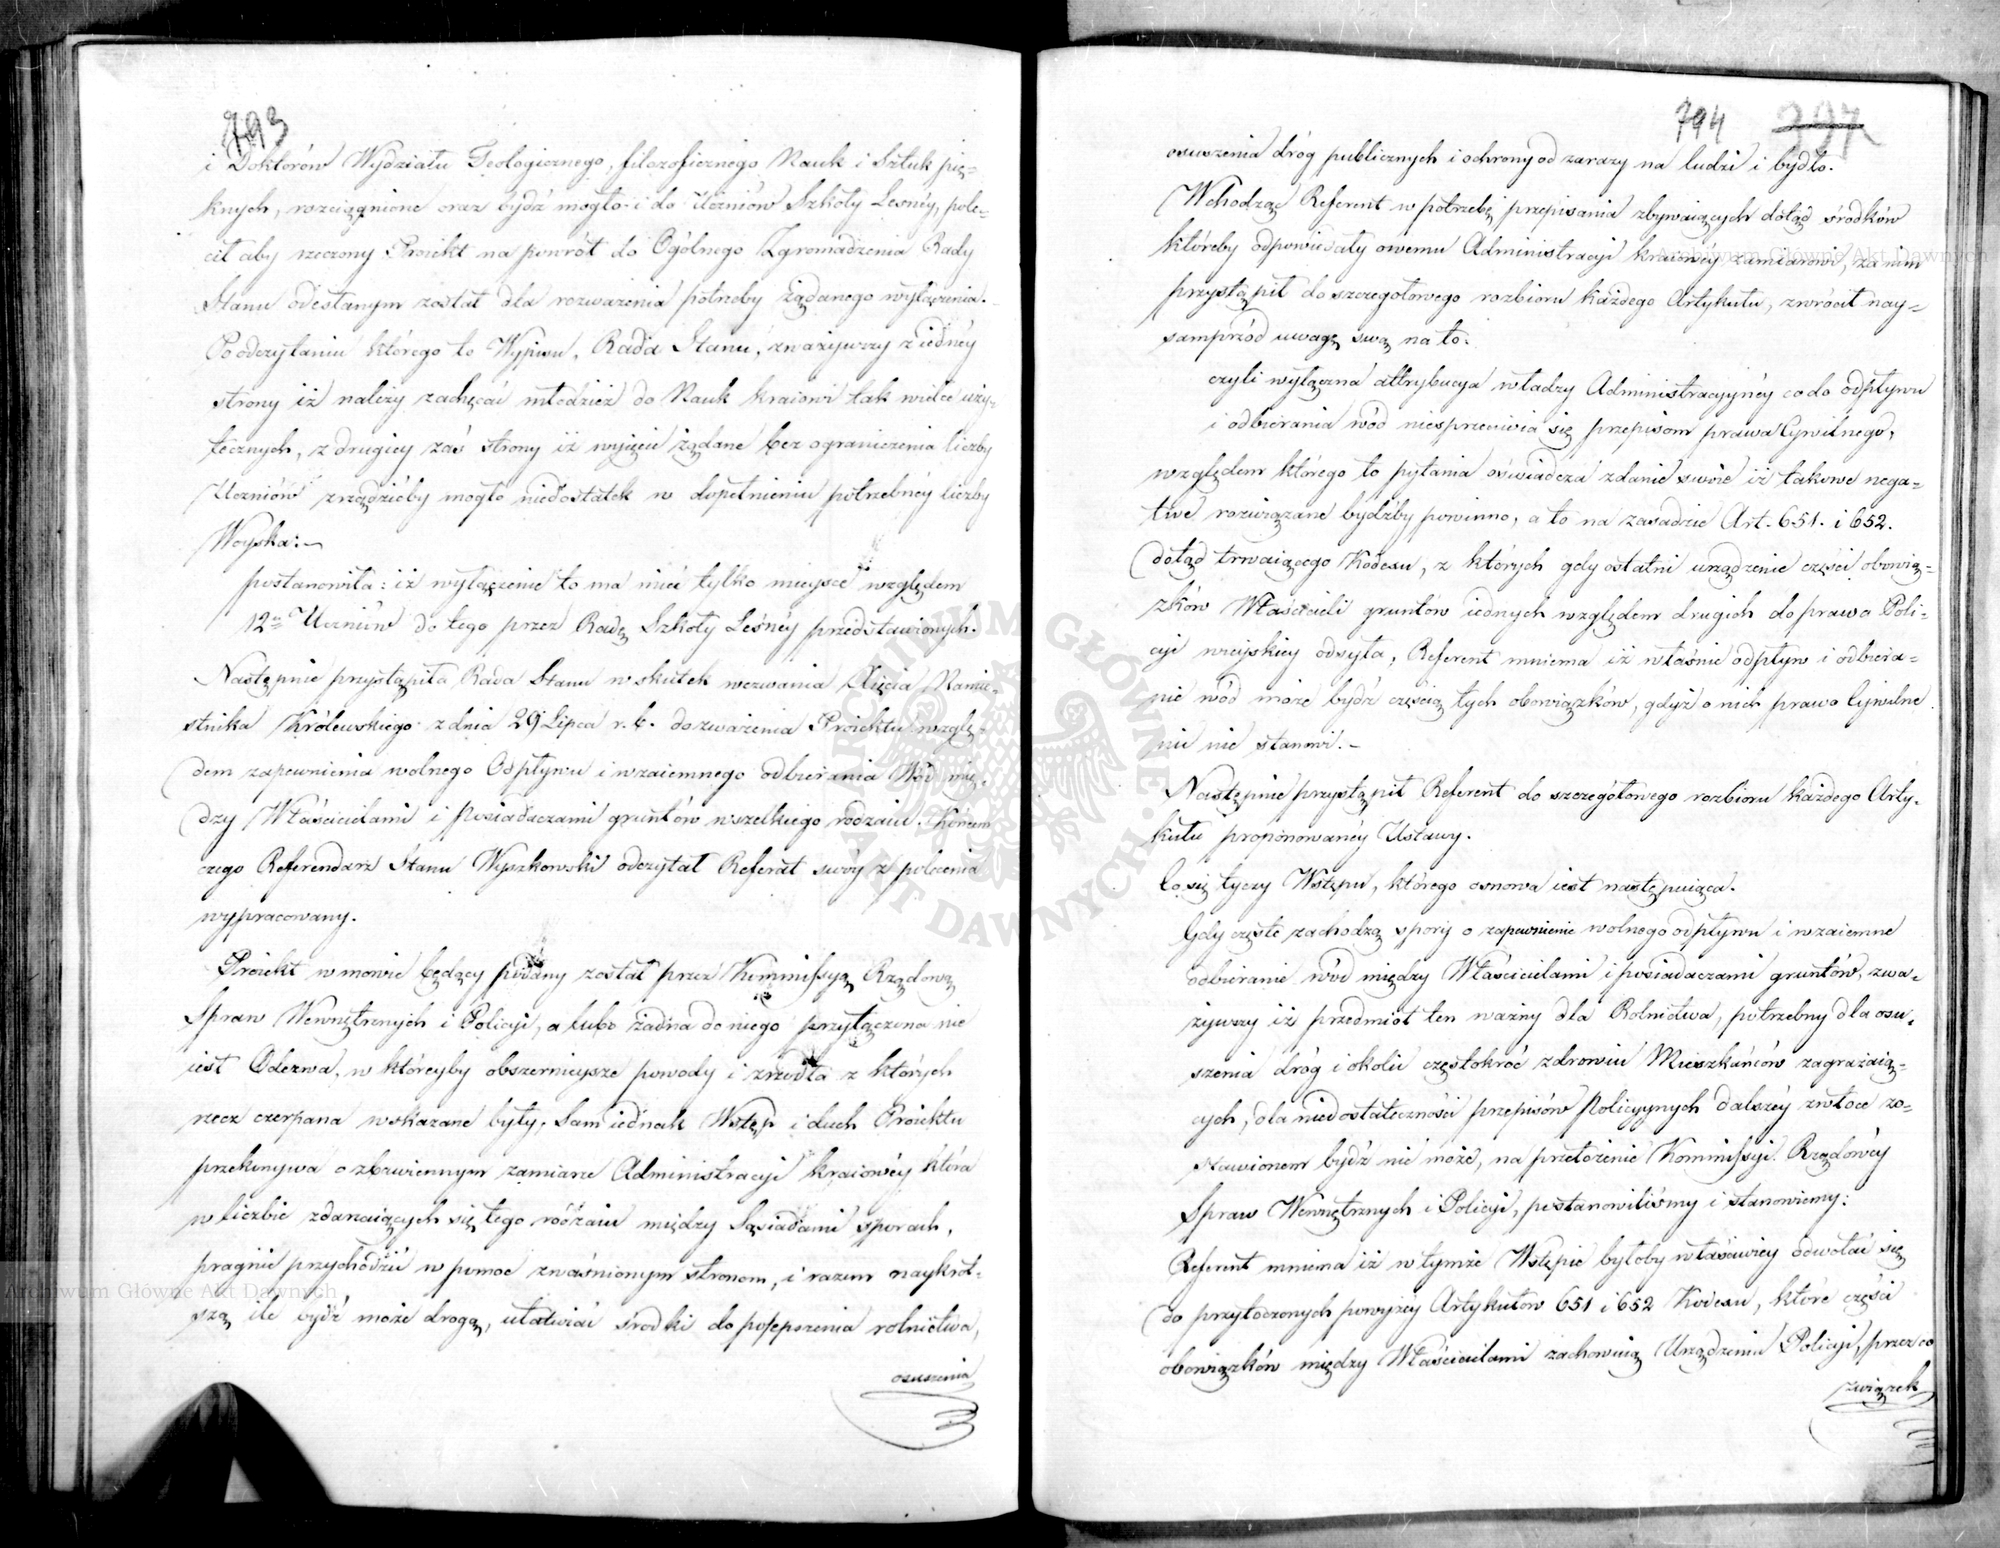 793
i Doktorów Wydziału Teologicznego, filozoficznego Nauk i Sztuk pię-
knych, rozciągnione oraz bydź mogło i do Uczniów Szkoły Leśney, pole-
cił aby rzeczony Proiekt na powrót do Ogólnego Zgromadzenia Rady
Stanu odesłanym został dla rozważenia potrzeby żądanego wyłączenia.
Po odczytaniu którego to Wypisu, Rada Stanu, zważywszy z iednéy
strony iż należy zachęcać młodzież do Nauk kraiowi tak wielce uży-
tecznych, z drugiey zaś strony iż wyięcie żądane bez ograniczenia liczby
Uczniów zrządzićby mogło niedostatek w dopełnieniu potrzebnéy liczby
Woyska:—
postanowiła: iż wyłączenie to ma mieć tylko mieysce względem
12u Uczniów do tego przez Radę Szkoły Leśnéy przedstawionych.
Następnie przystąpiła Rada Stanu w skutek wezwania Xięcia Namie-
stnika Królewskiego z dnia 29 Lipca r. b. do zważenia Proiektu wzglę-
dem zapewnienia wolnego Odpływu i wzaiemnego odbierania Wód mię-
dzy Właścicielami i Posiadaczami gruntów wszelkiego rodzaiu. Końcem
czego Referendarz Stanu Wyszkowski odczytał Referat swóy z polecenia
wypracowany.
Proiekt w mowie będący podany został przez Kommissyą Rządową
Spraw Wewnętrznych i Policyi, a lubo żadna do niego przyłączona nie
iest Odezwa, w któreyby obszernieysze powody i zrzódła z których
rzecz czerpana wskazane były, Sam iednak Wstęp i duch Proiektu
przekonywa o zbawiennym zamiarze Administracyi kraiowéy która
w liczbie zdarzaiących się tego rodzaiu między Sąsiadami sporach,
pragnie przychodzić w pomoc zwaśnionym stronom, i razem naykrót-
szą ile bydź może drogą, ułatwiać środki do polepszenia rolnictwa,
osuszenia
794 397
osuszenia dróg publicznych i ochrony od zarazy na ludzi i bydło.
Wchodząc Referent w potrzebę przepisania zbywaiących dotąd środków
któreby odpowiedały owemu Administracyi kraiowéy zamiarowi, za nim
przystąpił do szczegółowego rozbioru każdego Artykułu, zwrócił nay-
samprzód uwagę swą na to:
czyli wyłączna attrybucya władzy Administracyynéy co do odpływu
i odbierania wód niesprzeciwia się przepisom prawa Cywilnego,
względem którego to pytania oświadcza zdanie swoie iż takowe nega-
tive rozwiązane bydźby powinno, a to na zasadzie Art. 651. i 652.
dotąd trwaiącego Kodexu, z których gdy ostatni urządzenie części obowią-
zków Właścicieli gruntów iednych względem drugich do prawa Poli-
cyi wieyskiey odsyła, Referent mniema iż właśnie odpływ i odbiera-
nie wód może bydź częścią tych obowiązków, gdyż o nich prawo Cywilne
nic nie stanowi.—
Następnie przystąpił Referent do szczegółowego rozbioru każdego Arty-
kułu proponowanéy Ustawy.
Co się tyczy Wstępu, którego osnowa iest następuiąca.
Gdy częste zachodzą spory o zapewnienie wolnego odpływu i wzaiemne
odbieranie wód między Właścicielami i posiadaczami gruntów, zwa-
żywszy iż przedmiot ten ważny dla Rolnictwa, potrzebny dla osu-
szenia dróg i okolic częstokroć zdrowiu Mieszkańców zagrażaią-
cych, dla niedostateczności przepisów Policyynych dalszéy zwłoce zo-
stawionem bydź nie może, na przełożenie Kommissyi Rządowéy
Spraw Wewnętrznych i Policyi, postanowiliśmy i stanowiemy:
Referent mniema iż w tymże Wstępie byłoby właściwiey odwołać się
do przytoczonych powyżéy Artykułów 651 i 652 Kodexu, które części
obowiązków między Właścicielami zachowuią Urządzeniu Policyi, przez co
związek
Archiwum Główne Akt Dawnych
Archiwum Główne Akt Dawnych
ARCHIWUM GŁÓWNE AKT DAWNYCH